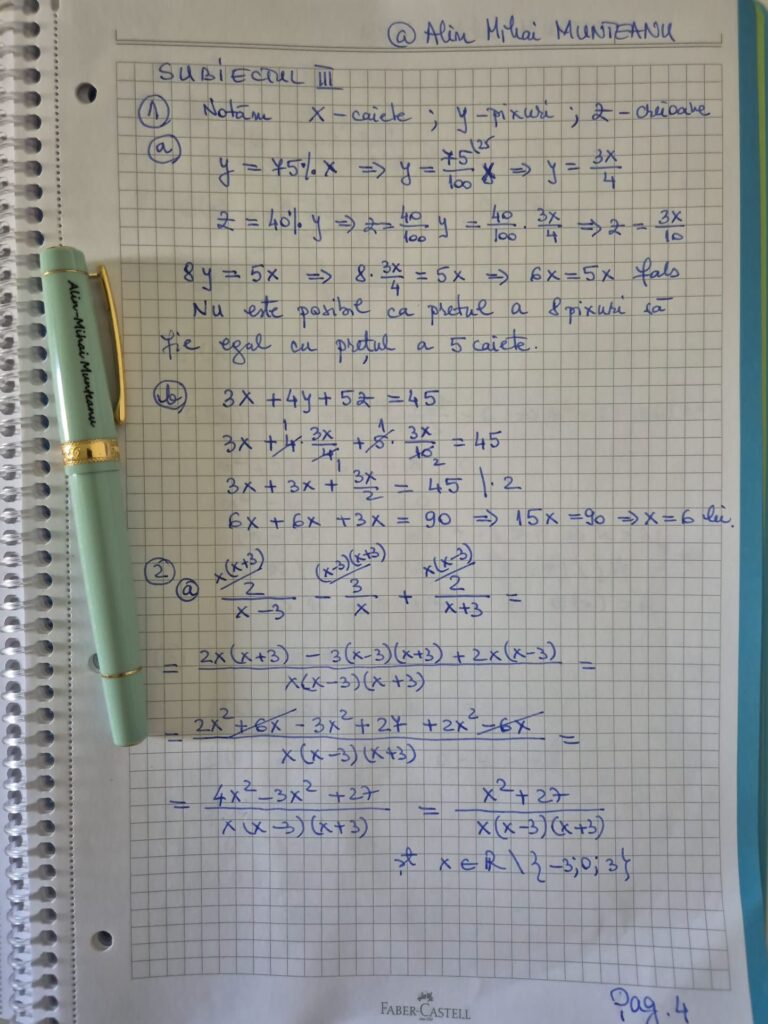 @ Alin Mihai MUNTEANU
SUBIECTUL III
① Notăm x-caiete ; y-pixuri ; z-creioane
ⓐ y = 75% x ⇒ y = 75/100 x |25 ⇒ y = 3x/4
z = 40% y ⇒ z = 40/100 y = 40/100 · 3x/4 ⇒ z = 3x/10
8y = 5x ⇒ 8 · 3x/4 = 5x ⇒ 6x = 5x fals
Nu este posibil ca prețul a 8 pixuri să
fie egal cu prețul a 5 caiete.
ⓑ 3x + 4y + 5z = 45
3x + 4 · 3x/4 + 5 · 3x/10 = 45
3x + 3x + 3x/2 = 45 | · 2
6x + 6x + 3x = 90 ⇒ 15x = 90 ⇒ x = 6 lei.
② ⓐ x(x+3)/ 2/(x-3) - (x-3)(x+3)/ 3/x + x(x-3)/ 2/(x+3) =
= (2x(x+3) - 3(x-3)(x+3) + 2x(x-3))/(x(x-3)(x+3)) =
= (2x² + 6x - 3x² + 27 + 2x² - 6x)/(x(x-3)(x+3)) =
= (4x² - 3x² + 27)/(x(x-3)(x+3)) = (x² + 27)/(x(x-3)(x+3))
x ∈ R \ {-3; 0; 3}
Alin-Mihai Munteanu
FABER-CASTELL
Pag. 4